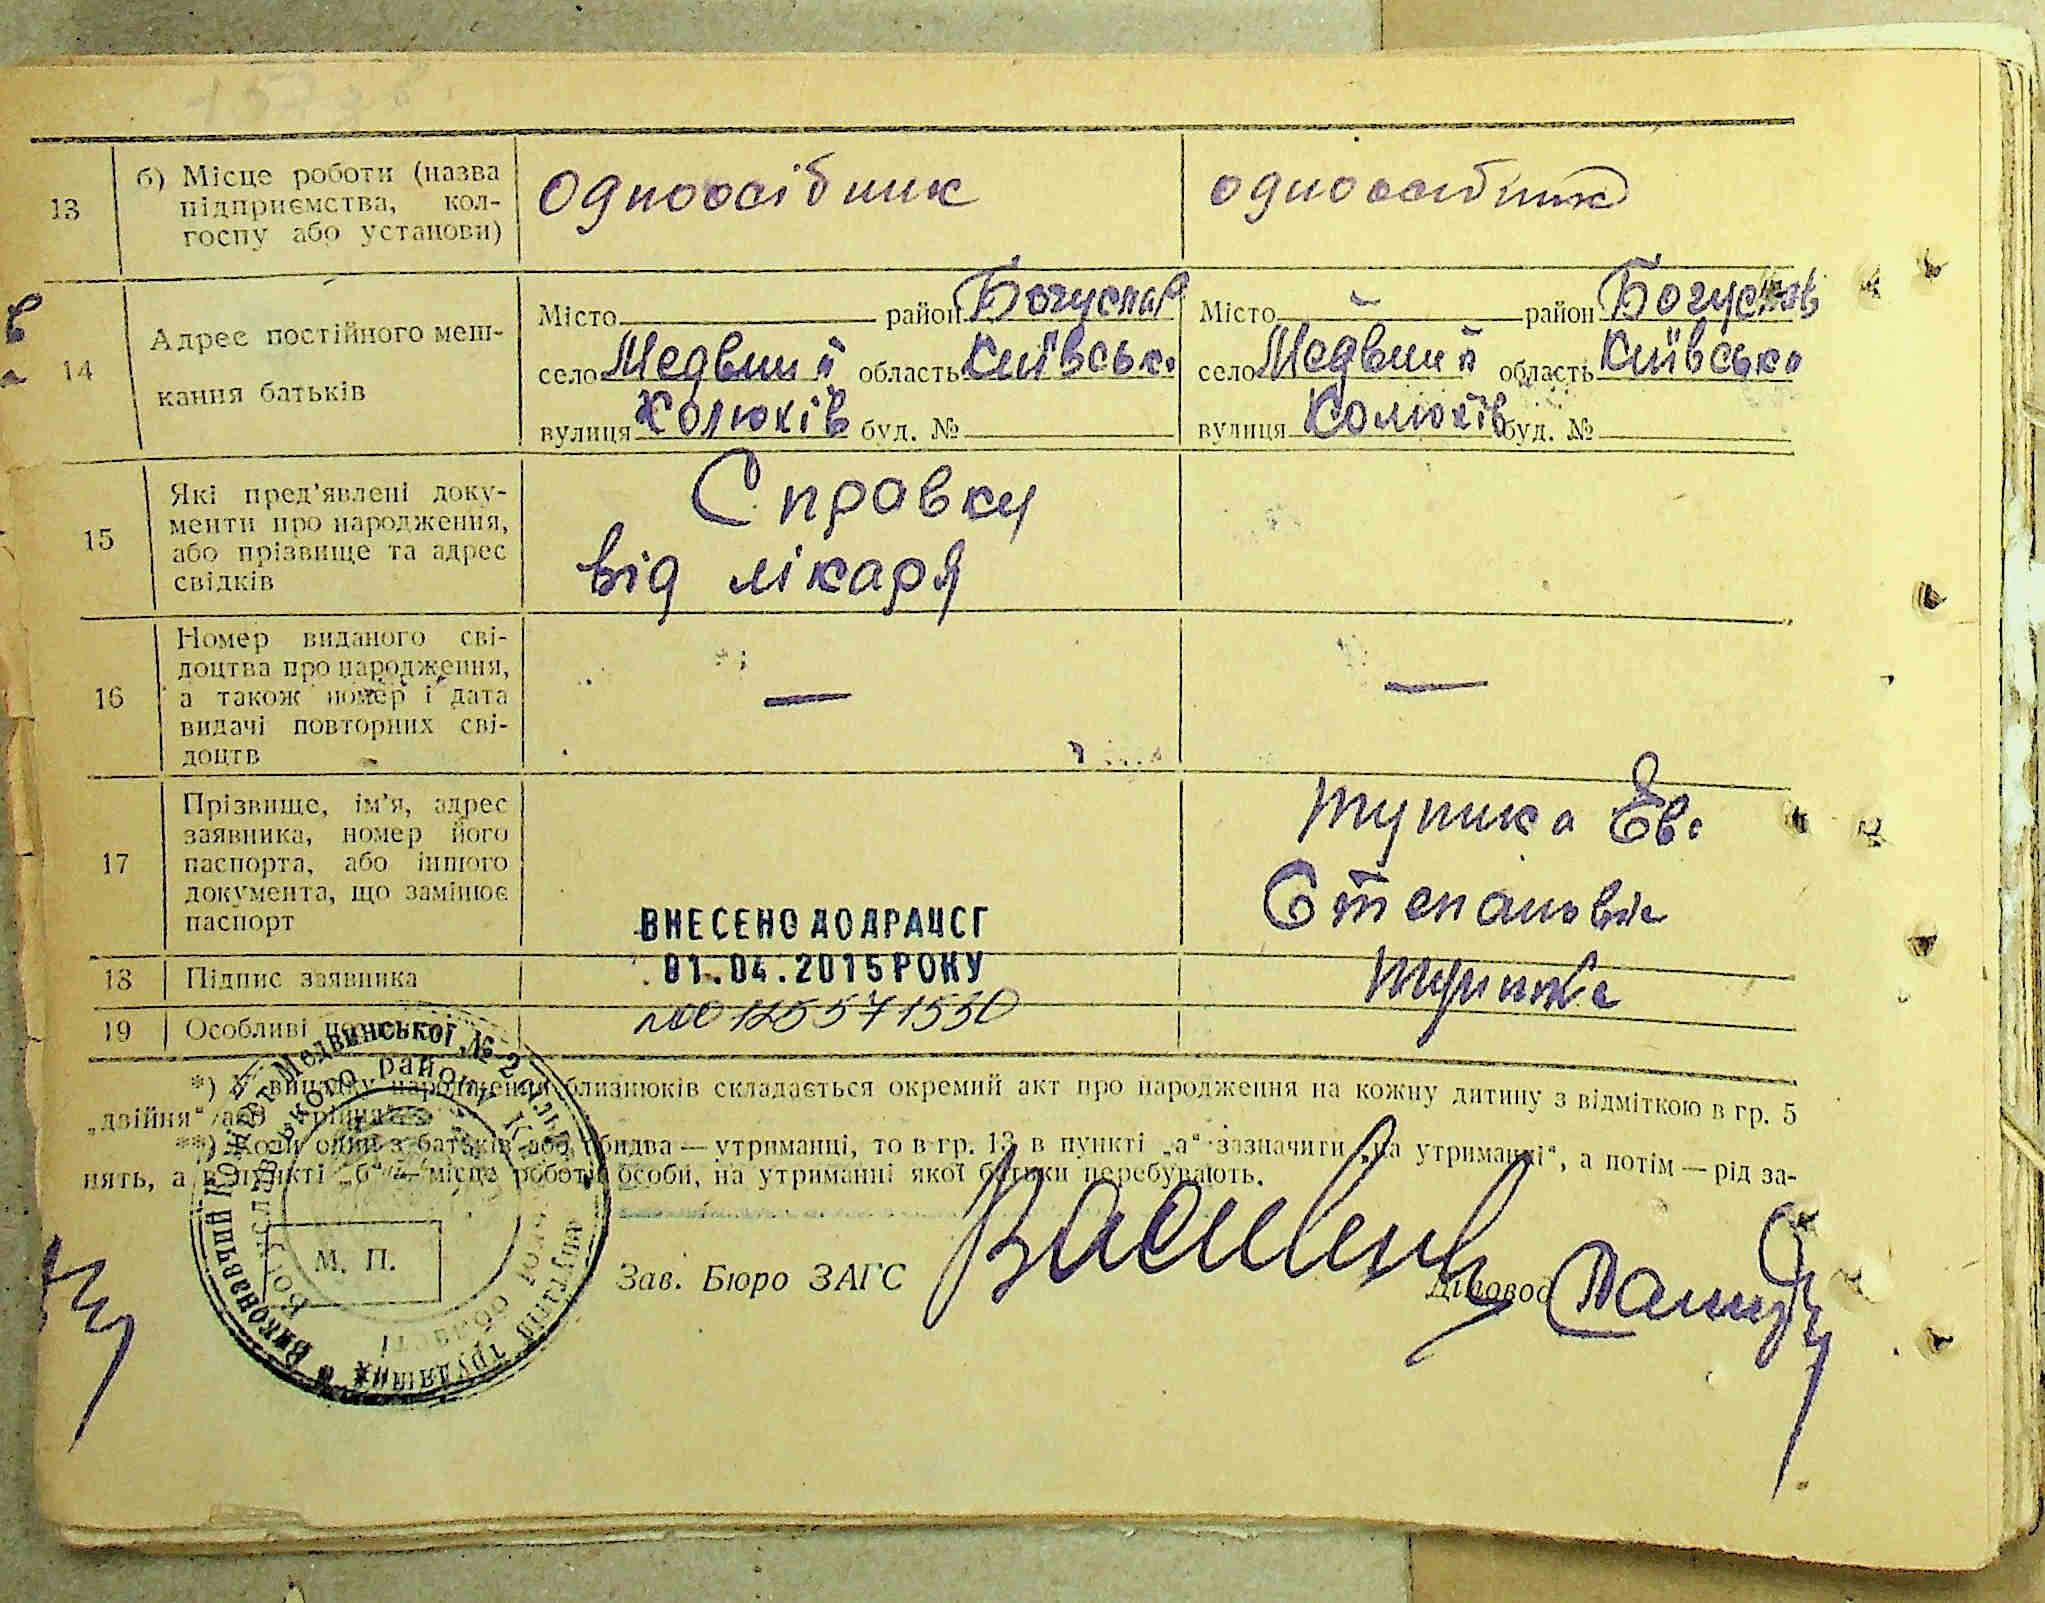 13
б) Місце роботи (назва
підприємства, кол-
госпу або установи)
одноосібник
одноосібник
14
Адрес постійного меш-
кання батьків
Місто район Богуслав
село Медвин й область Київсько
вулиця Колюків буд. №
Місто район Богуслав
село Медвин й область Київсько
вулиця Колюків буд. №
15
Які пред’явлені доку-
менти про народження,
або прізвище та адрес
свідків
Справку
від лікаря
16
Номер виданого сві-
доцтва про народження,
а також номер і дата
видачі повторних сві-
доцтв
—
—
17
Прізвище, ім’я, адрес
заявника, номер його
паспорта, або іншого
документа, що замінює
паспорт
Тупика Ев.
Степановна
ВНЕСЕНО ДО ДРАЦСГ
01.04.2015 РОКУ
№00125571530
18
Підпис заявника
Тупика
19
Особливі
*) У випадку народження близнюків складається окремий акт про народження на кожну дитину з відміткою в гр. 5
„двійня“ або „трійня“.
**) Коли один з батьків або обидва — утриманці, то в гр. 13 в пункті „а“ зазначити „на утриманні“, а потім — рід за-
нять, а в пункті „б“ — місце роботи особи, на утриманні якої батьки перебувають.
Виконавчий Комітет Медвинської № 2 сільської
депутатів трудящих
Богуславського району Київської області
М. П.
Зав. Бюро ЗАГС
Діловод